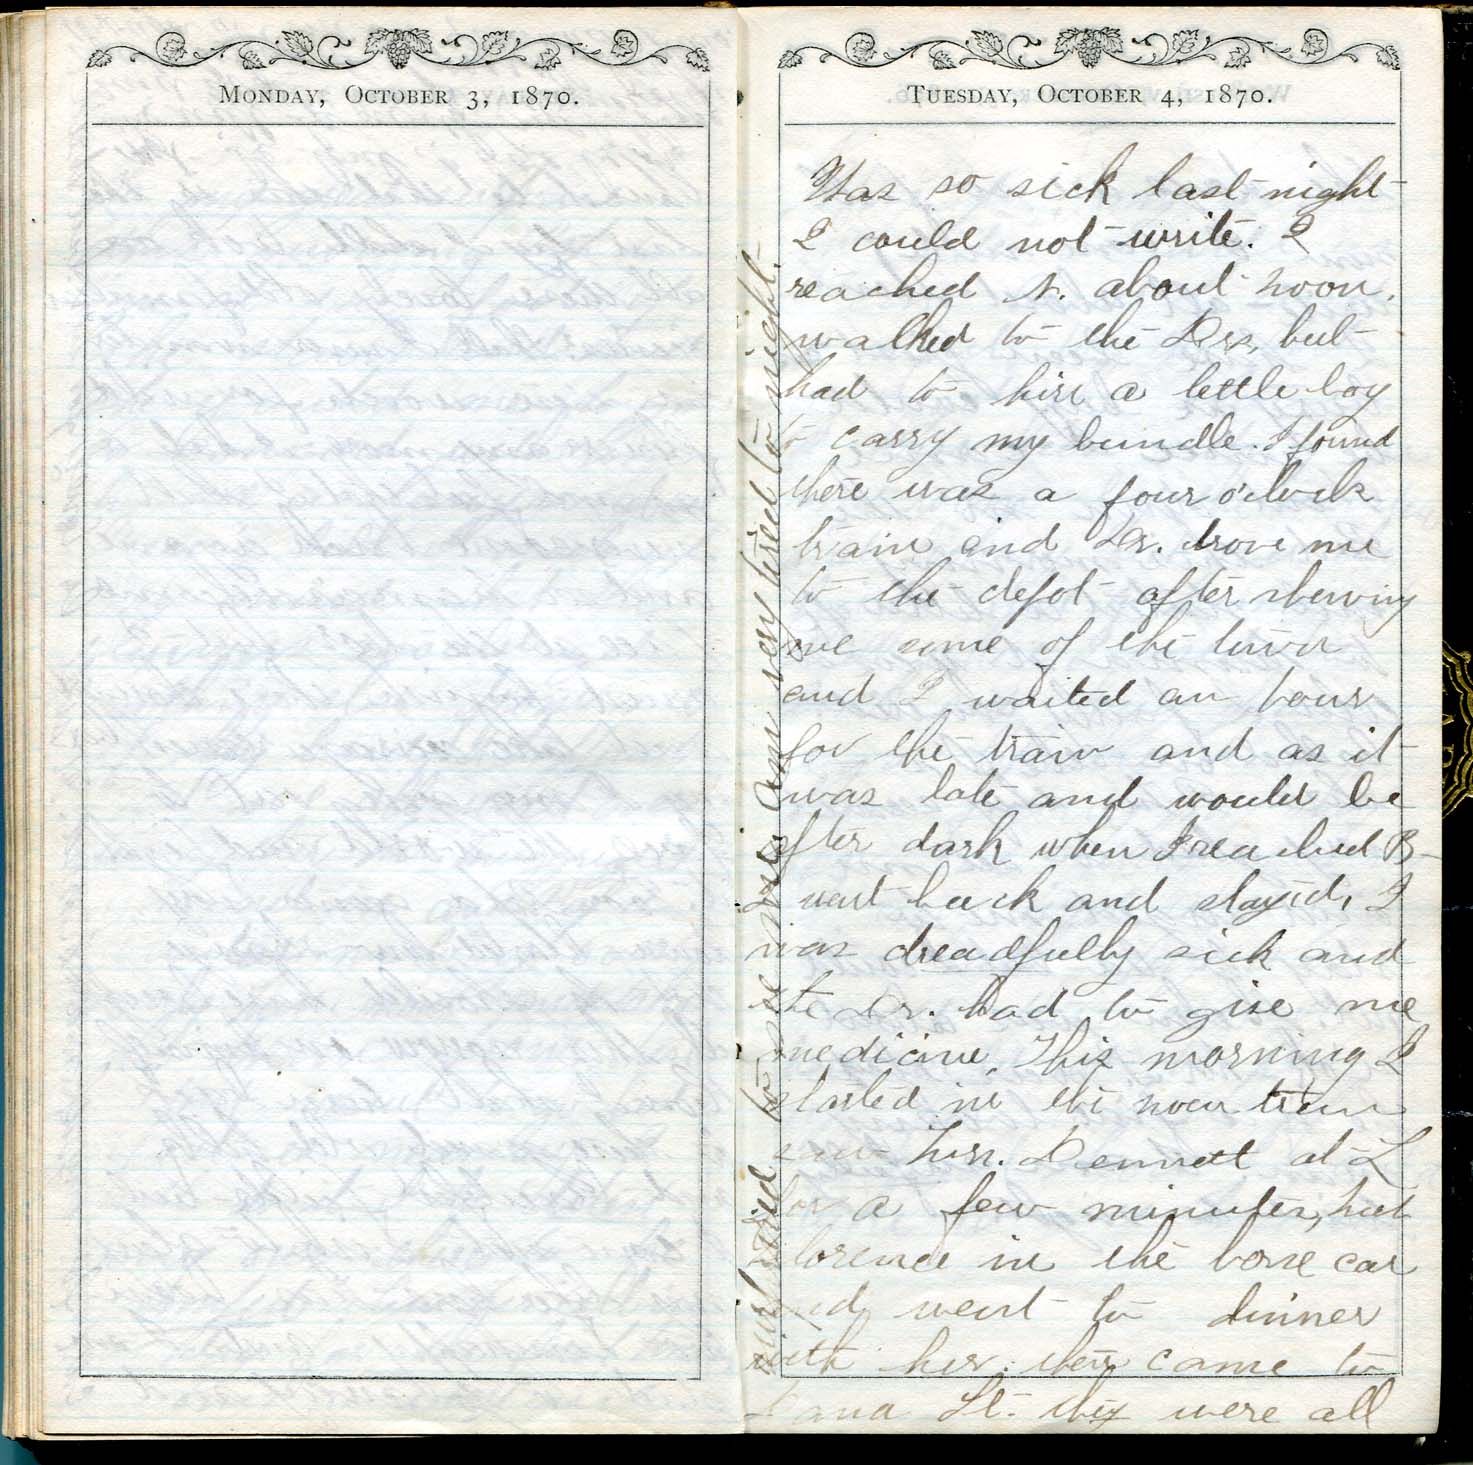 MONDAY, OCTOBER 3, 1870.
TUESDAY, OCTOBER 4, 1870.
Was so sick last night
I could not write. I
reached N. about noon.
walked to the Drs, but
had to hire a little boy
to carry my bundle. I found
there was a four o'clock
train and Dr. drove me
to the depot after showing
me some of the town
and I waited an hour
for the train and as it
was late and would be
after dark when I reached B
I went back and stayed, I
was dreadfully sick and
the Dr. had to give me
medicine, This morning I
started in the noon train
saw Mrs. Dennett at L
for a few minutes, met
Florence in the horse car
and went to dinner
with her. then came to
Dana St. they were all
much tried to see me am very tired to night.